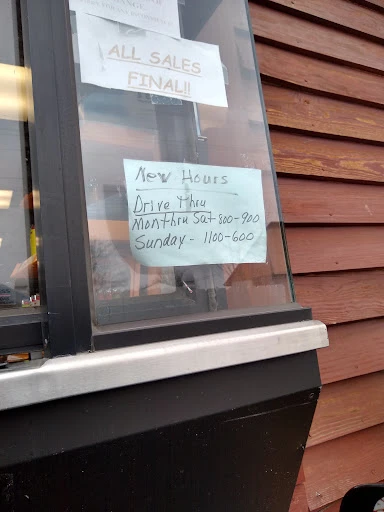 CHANGE.
ALL SALES
FINAL!!
New Hours
Drive Thru
Mon thru Sat 800-900
Sunday - 1100-600